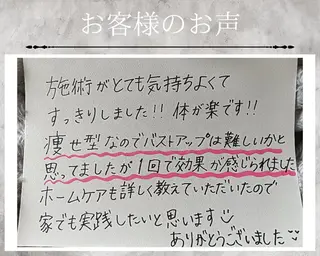 お客様のお声
施術がとても気持ちよくて
すっきりしました!! 体が楽です!!
痩せ型なのでバストアップは難しいかと
思ってましたが1回で効果が感じられました
ホームケアも詳しく教えていただいたので
家でも実践したいと思います
ありがとうございました